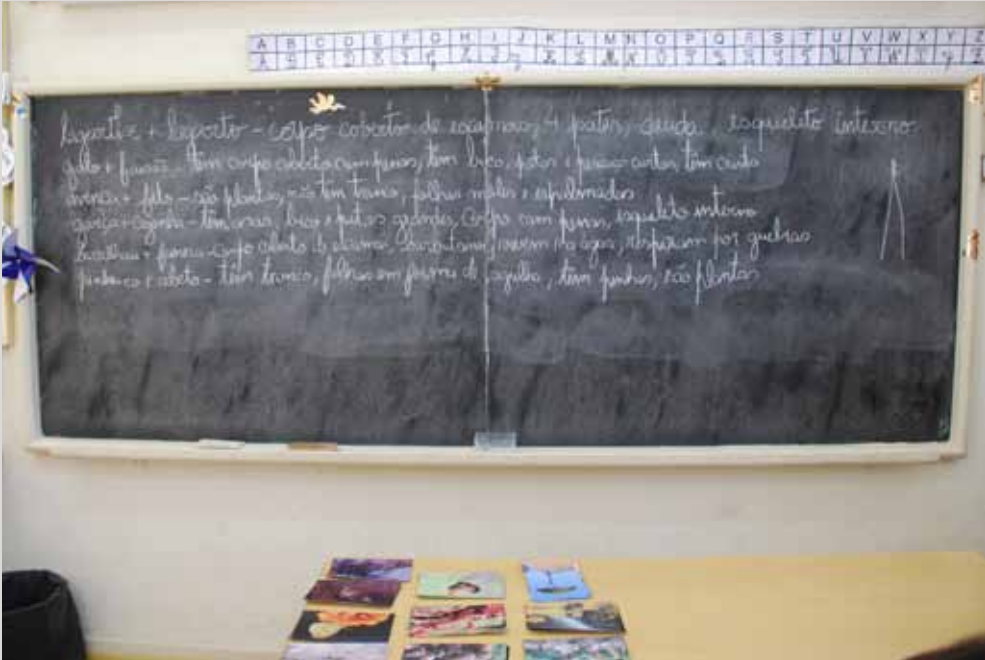 A B C D E F G H I J K L M N O P Q R S T U V W X Y Z
lagartixa + lagarto - corpo coberto de escamas, 4 patas, cauda, esqueleto interno
galo + faisão - têm corpo coberto com penas, têm bico, patas e pescoço curtos, têm crista
avenca + feto - são plantas, não têm tronco, folhas moles e
garça + cegonha - têm asas, bico e patas grandes, corpo com penas, esqueleto interno
bacalhau + - corpo coberto de escamas, barbatanas, vivem na água, respiram por guelras
pinheiro e abeto - têm tronco, folhas em forma de agulha, têm pinhas, são plantas